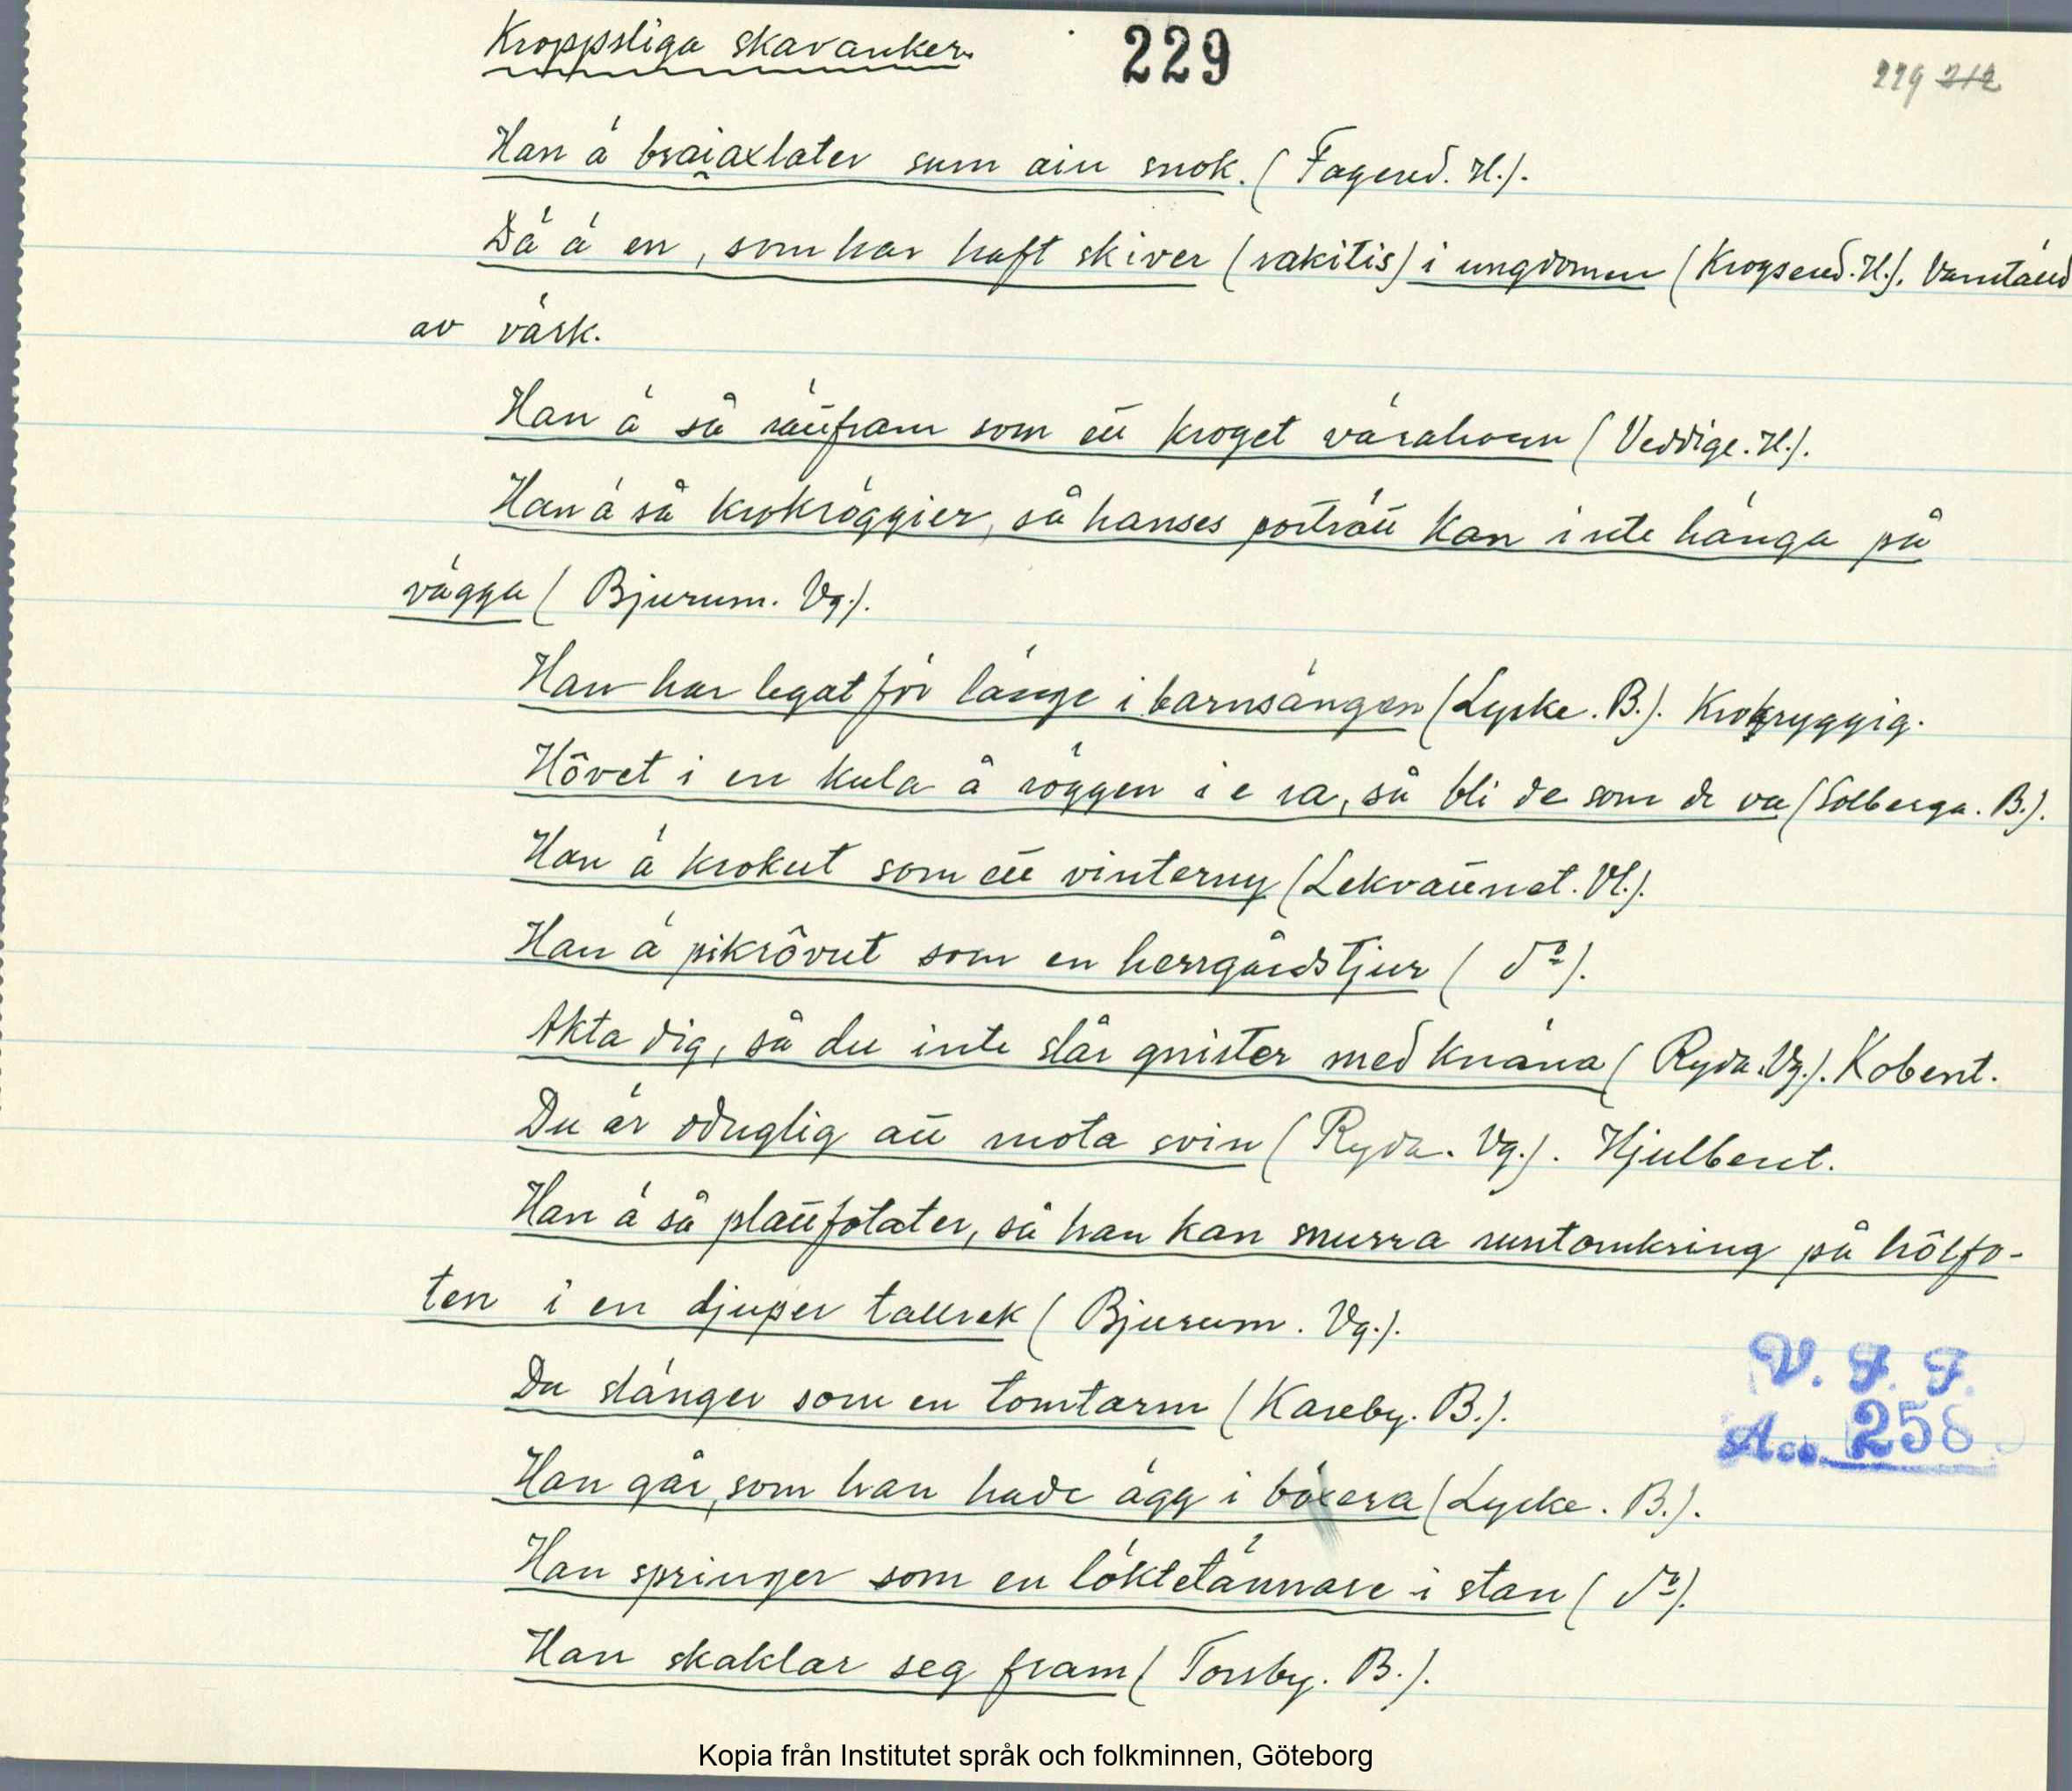 Kroppsliga skavanker.
229
229 212
Han ä braiaxlater sum ain snok. (Fagered. H.).
Dä ä en, som har haft skiver (rakitis) i ungdomen (Krogsered. H.). Vanställd
av värk.
Han ä så rättfram som ett kroget värahorn (Veddige. H.).
Han ä så krokröggier, så hanses porträtt kan inte hänga på
vägga (Bjurum. Vg.).
Han har legat för länge i barnsängen (Lycke. B.). Krokryggig.
Hôvet i en kula å röggen i e ra, så bli de som de va (Solberga. B.).
Han ä krokut som ett vinterny (Lekvattnet. Vl.).
Han ä pikrôvut som en herrgårdstjur (do).
Akta dig, så du inte slår gnister med knäna (Ryda. Vg.). Kobent.
Du är oduglig att mota svin (Ryda. Vg.). Hjulbent.
Han ä så plattfotater, så han kan snurra runtomkring på hôlfo-
ten i en djuper tallrek (Bjurum. Vg.).
Du slänger som en tomtarm (Kareby. B.).
Han går, som han hade ägg i böxera (Lycke. B.).
Han springer som en löktetännare i stan (do).
Han skaklar seg fram (Torsby. B.).
V. F. F.
Acc. 258
Kopia från Institutet språk och folkminnen, Göteborg